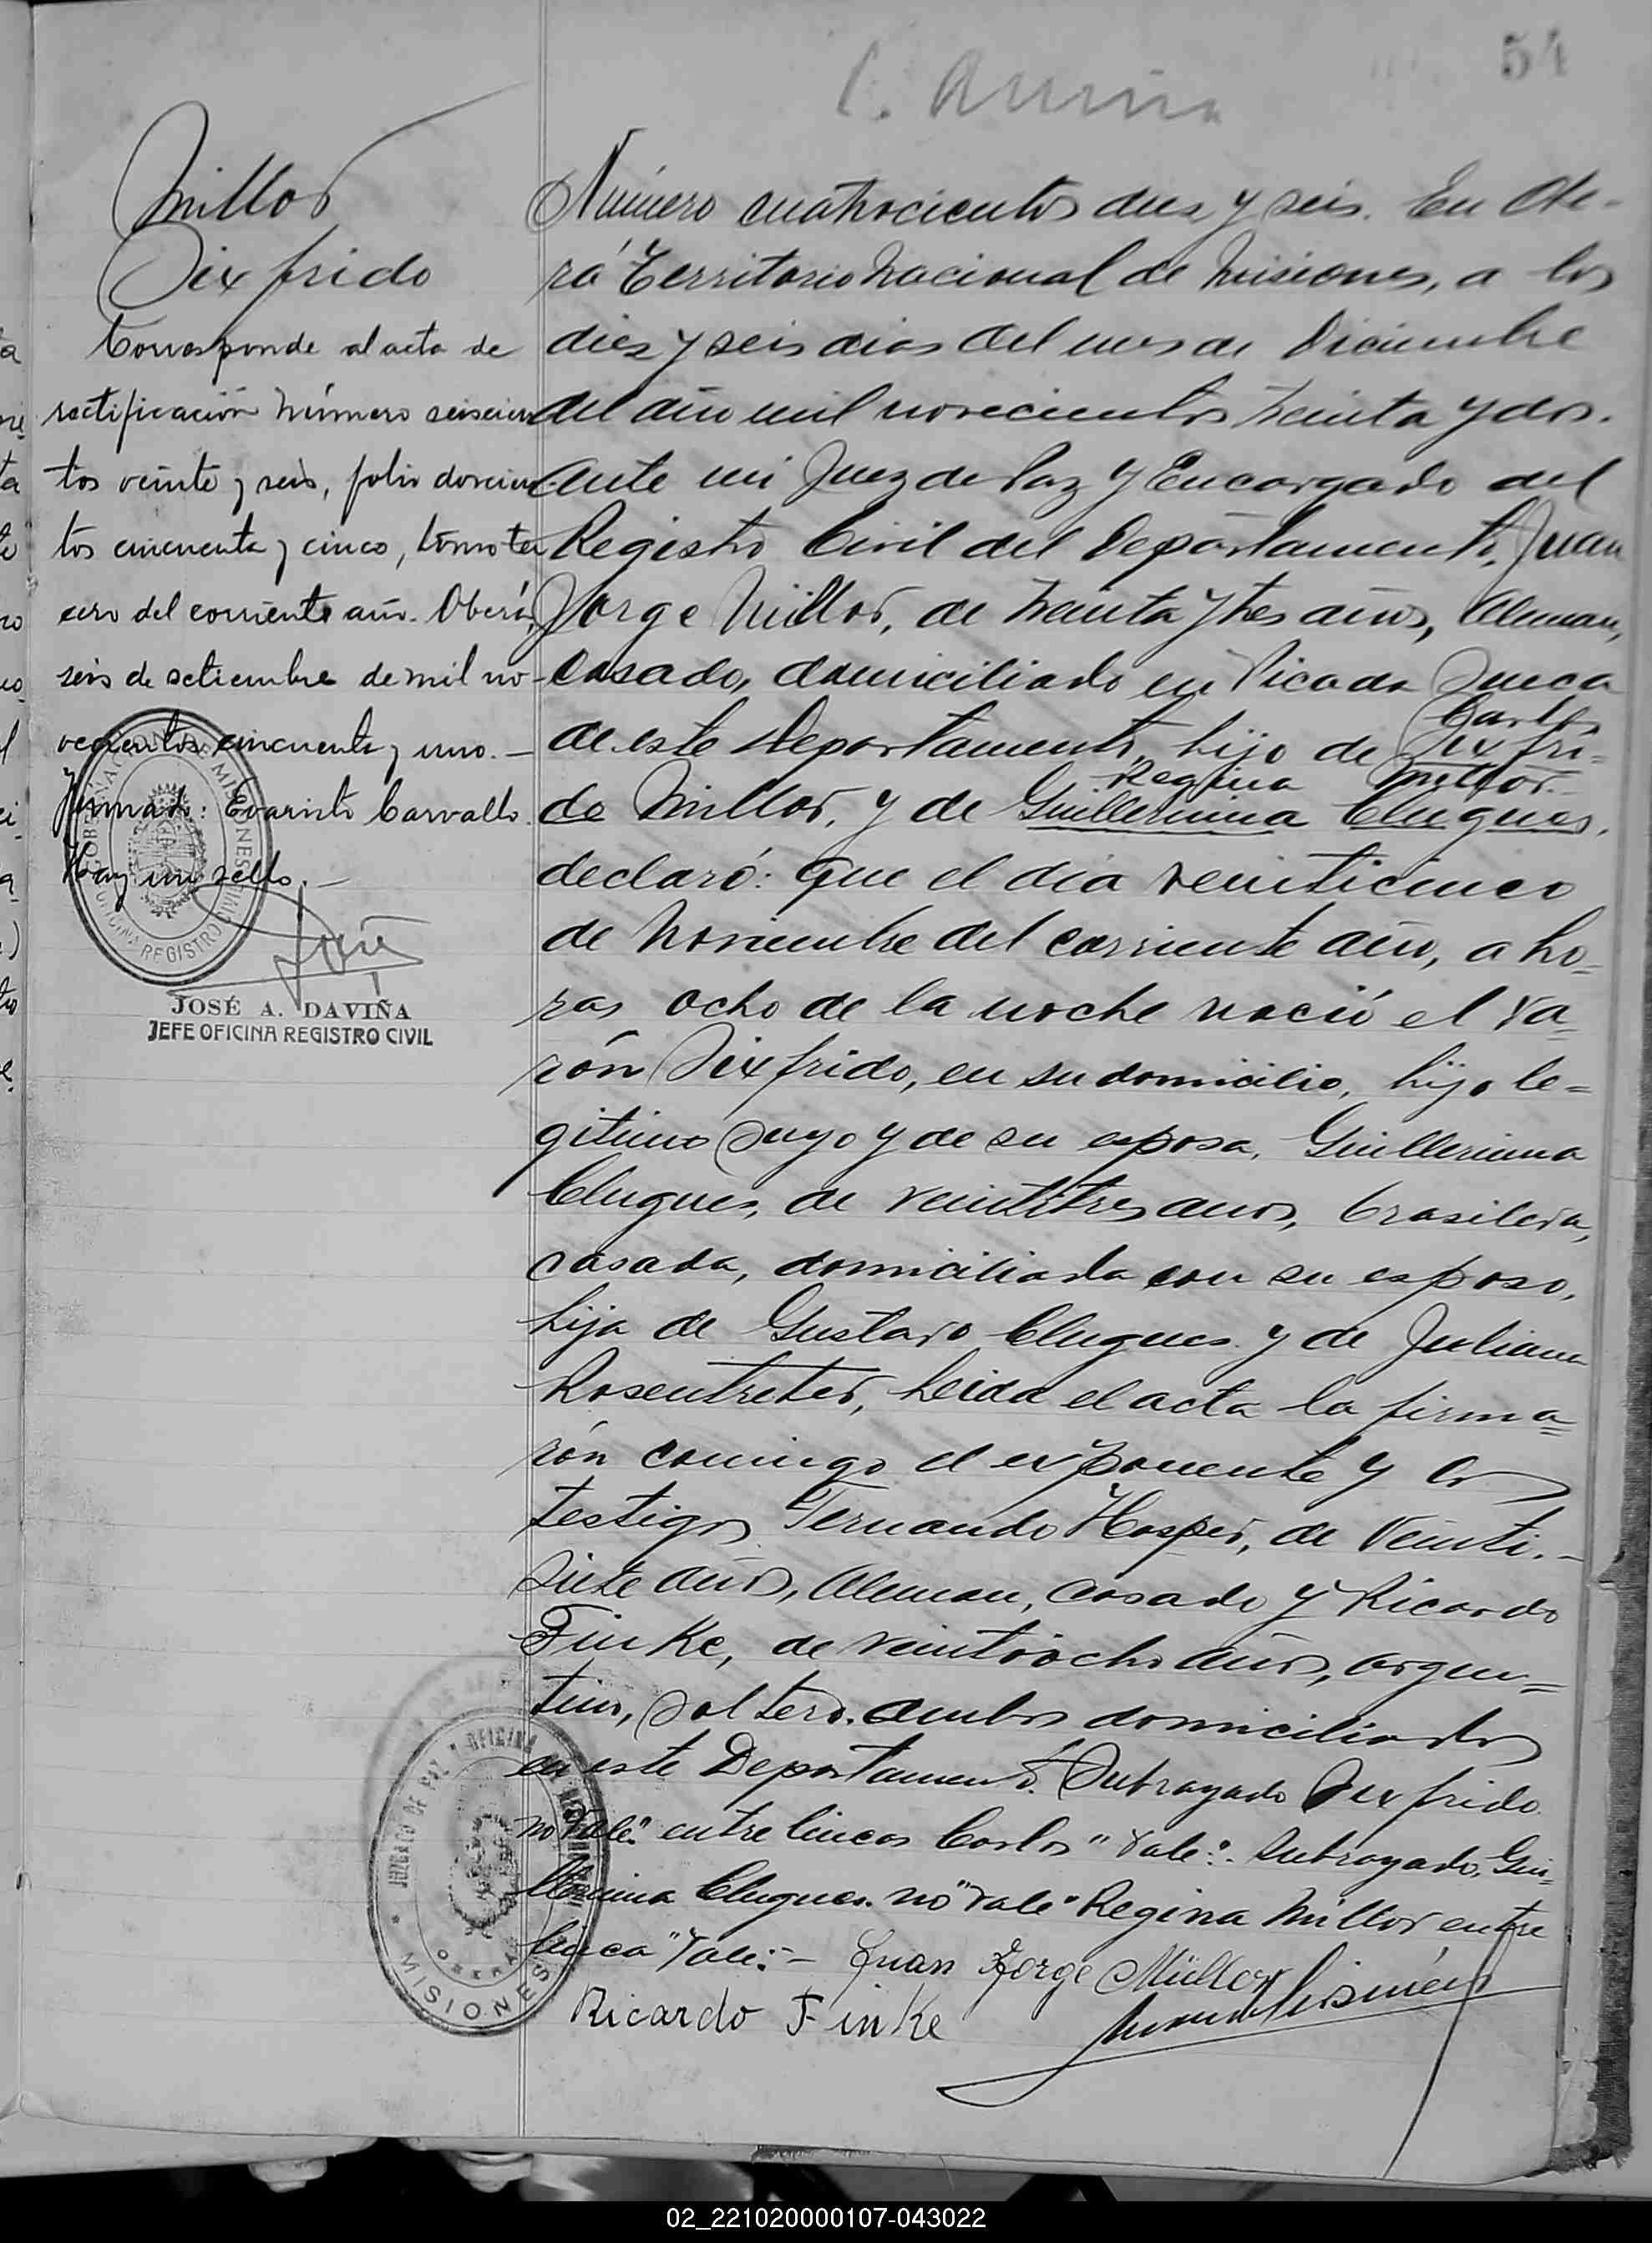 54
Millor
Sixfrido
Corresponde al acta de
rectificación número seiscien
tos veinte y seis, folio doscien
tos cincuenta y cinco, tomo ter
cero del corriente año. Oberá,
seis de setiembre de mil no-
vecientos cincuenta y uno. -
Firmado: Evaristo Carvallo.
Hay un sello. -
JOSÉ A. DAVIÑA
JEFE OFICINA REGISTRO CIVIL
Número cuatrocientos diez y seis. En Obe-
rá Territorio Nacional de Misiones, a los
diez y seis dias del mes de Diciembre
del año mil novecientos treinta y dos.
ante mi Juez de Paz y Encargado del
Registro Civil del Departamento, Juan
Jorge Millor, de treinta y tres años, Aleman,
casado, domiciliado en Picada Sueca
de este Departamento, hijo de Carlos Sixfri=
do Millor, y de Regina Millor. Guillermina Clugues,
declaró: que el día veinticinco
de Noviembre del corriente año, a ho=
ras ocho de la noche nació el va=
rón Sixfrido, en su domicilio, hijo le=
gitimo suyo y de su esposa, Guillermina
Clugues, de veintitres años, brasilera,
casada, domiciliada con su esposo,
hija de Gustavo Clugues y de Juliana
Rosentreter, Leida el acta la firma=
rón comingo el exponente y los
testigos Fernando Hosper, de Veinti.-
siete años, Aleman, casado y Ricardo
Finke, de veintiocho años, argen=
tino, soltero. ambos domiciliados
en este Departamento. Subrayado Sixfrido
no "Vale". entre lineas Carlos "Vale". Subrayado. Gui=
llermina Clugues. no "Vale" Regina Millor entre
linea "Vale". - Juan Jorge Müller
Ricardo Finke
GOBERNACION DE MISIONES
OFICINA REGISTRO CIVIL
JUZGADO DE PAZ Y OFICINA DE
OBERA
MISIONES
02_221020000107-043022